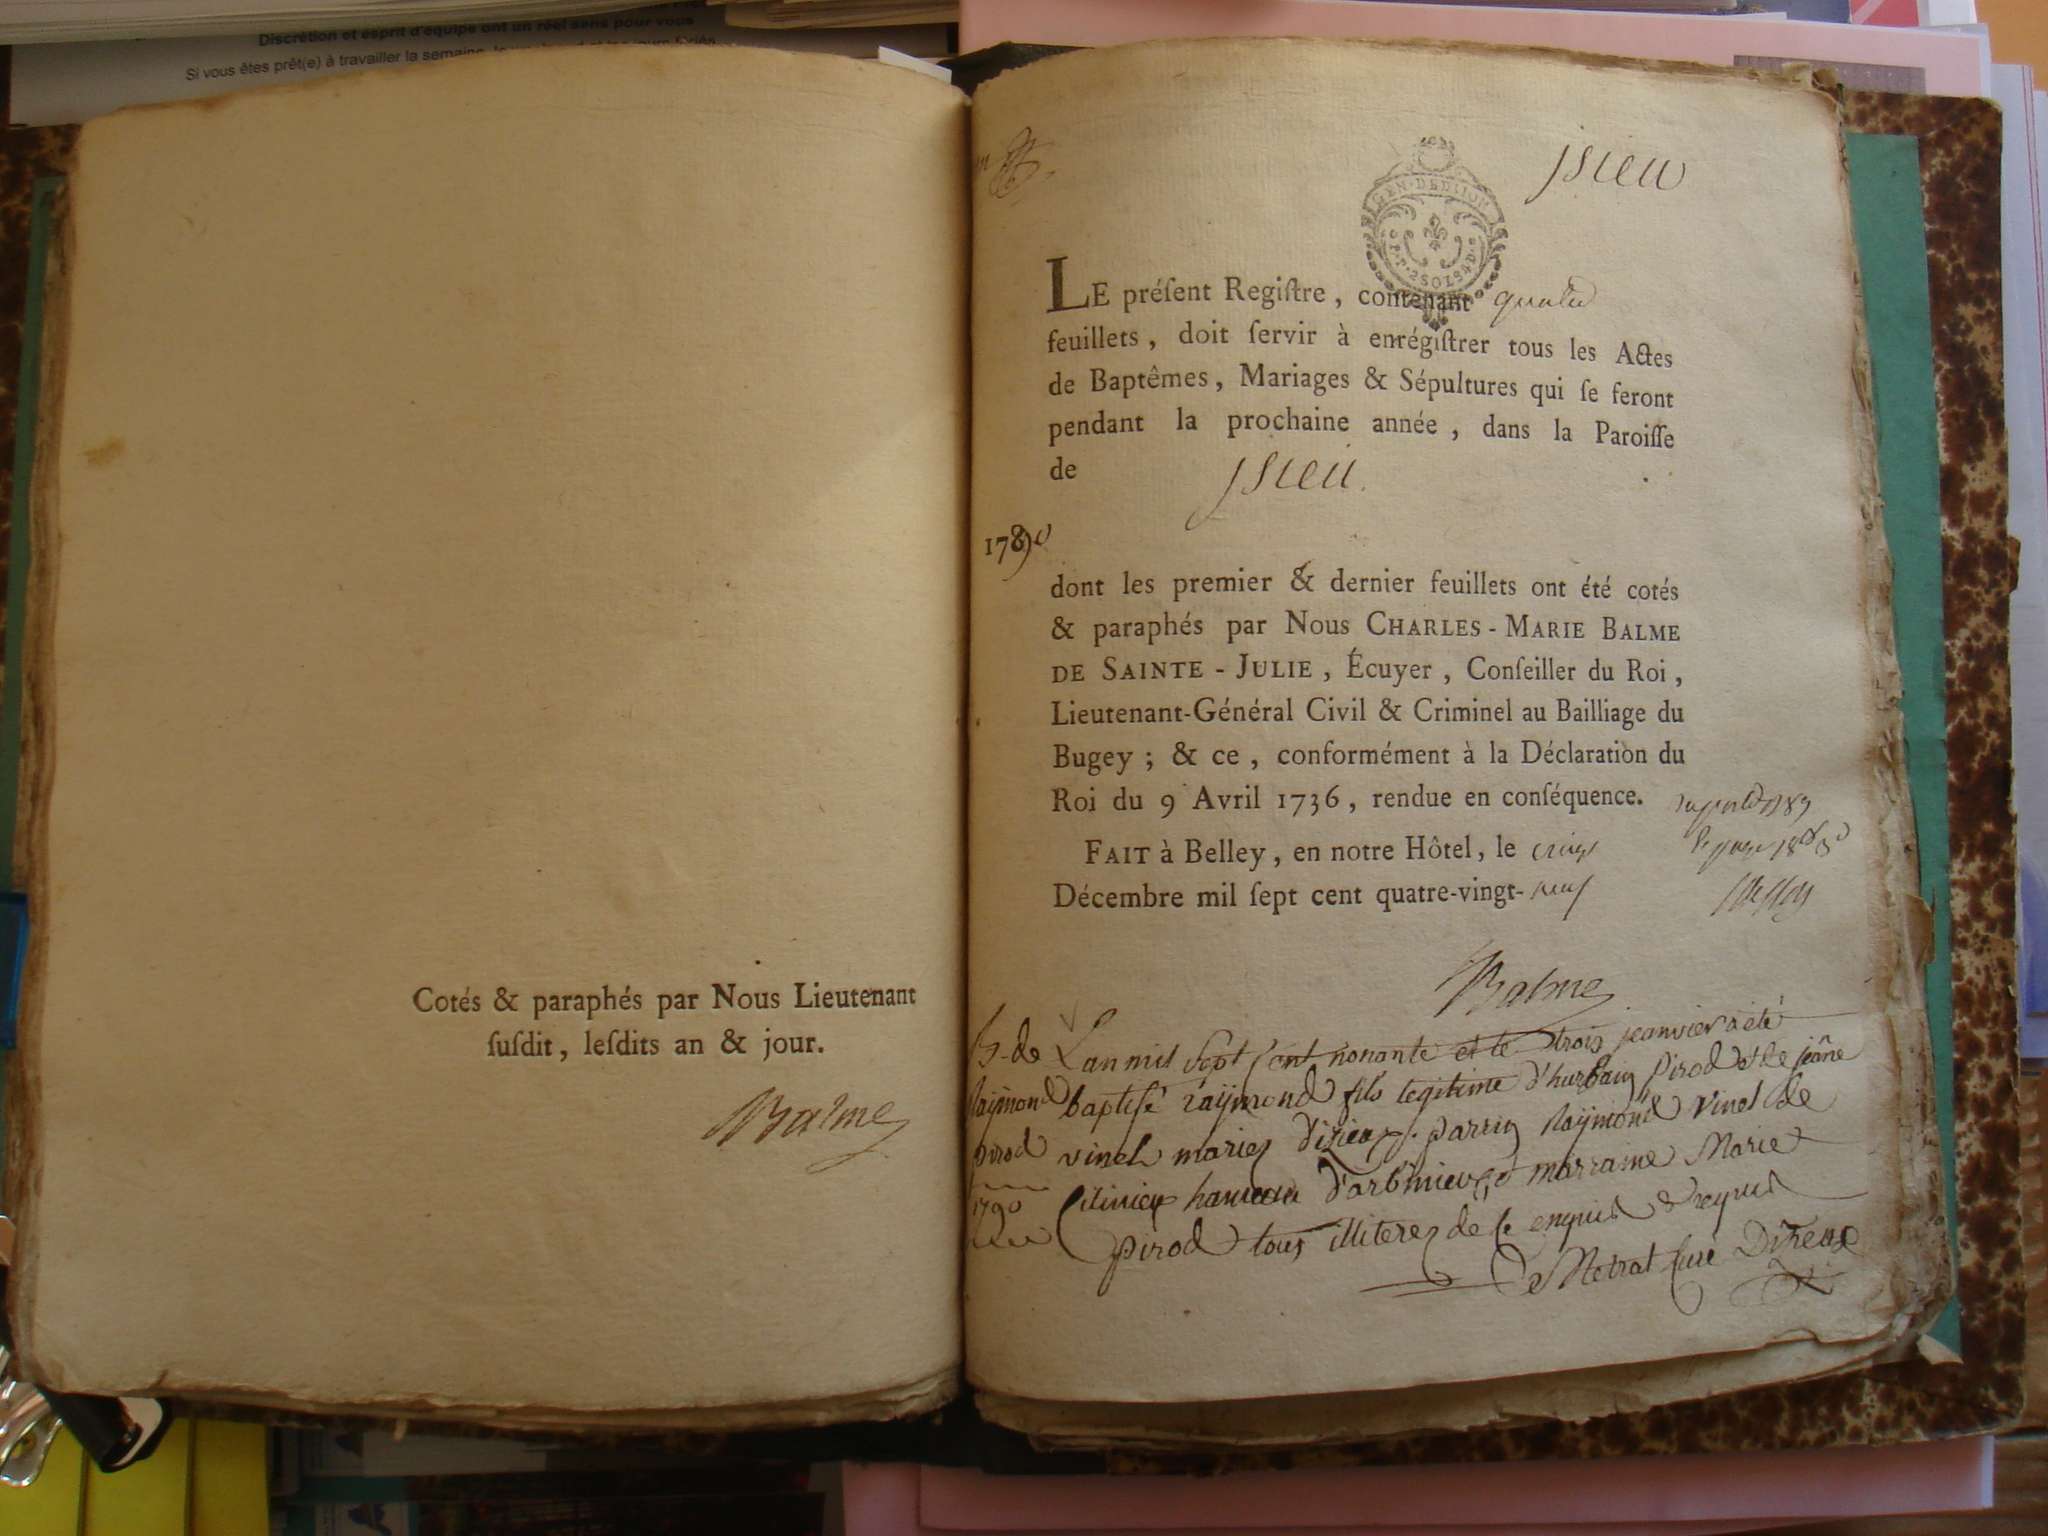 Discrétion et esprit d'équipe ont un réel sens pour vous
Si vous êtes prêt(e) à travailler la semaine
Cotés & paraphés par Nous Lieutenant
ſuſdit, leſdits an & jour.
Balme
jsieu
GEN·DEDIJON
LE préſent Regiſtre, contenant quatre
feuillets, doit ſervir à enrégiſtrer tous les Actes
de Baptêmes, Mariages & Sépultures qui ſe feront
pendant la prochaine année, dans la Paroiſſe
de jsieu.
1790
dont les premier & dernier feuillets ont été cotés
& paraphés par Nous CHARLES-MARIE BALME
DE SAINTE-JULIE, Écuyer, Conſeiller du Roi,
Lieutenant-Général Civil & Criminel au Bailliage du
Bugey; & ce, conformément à la Déclaration du
Roi du 9 Avril 1736, rendue en conſéquence.
FAIT à Belley, en notre Hôtel, le
Décembre mil ſept cent quatre-vingt-neuf
Balme
B. de
Raymond
pirod
1790
Lan mil sept cent nonante et le trois jeanvier a été
baptisé raymond fils legitime d'hurbain pirod et de jeãne
vinel mariez d'izieu. parrin Raymond Vinel de
hameau d'arbinieu, et marraine Marie
pirod tous illiterez de ce enquis & requis
Metrat Curé Dizieux